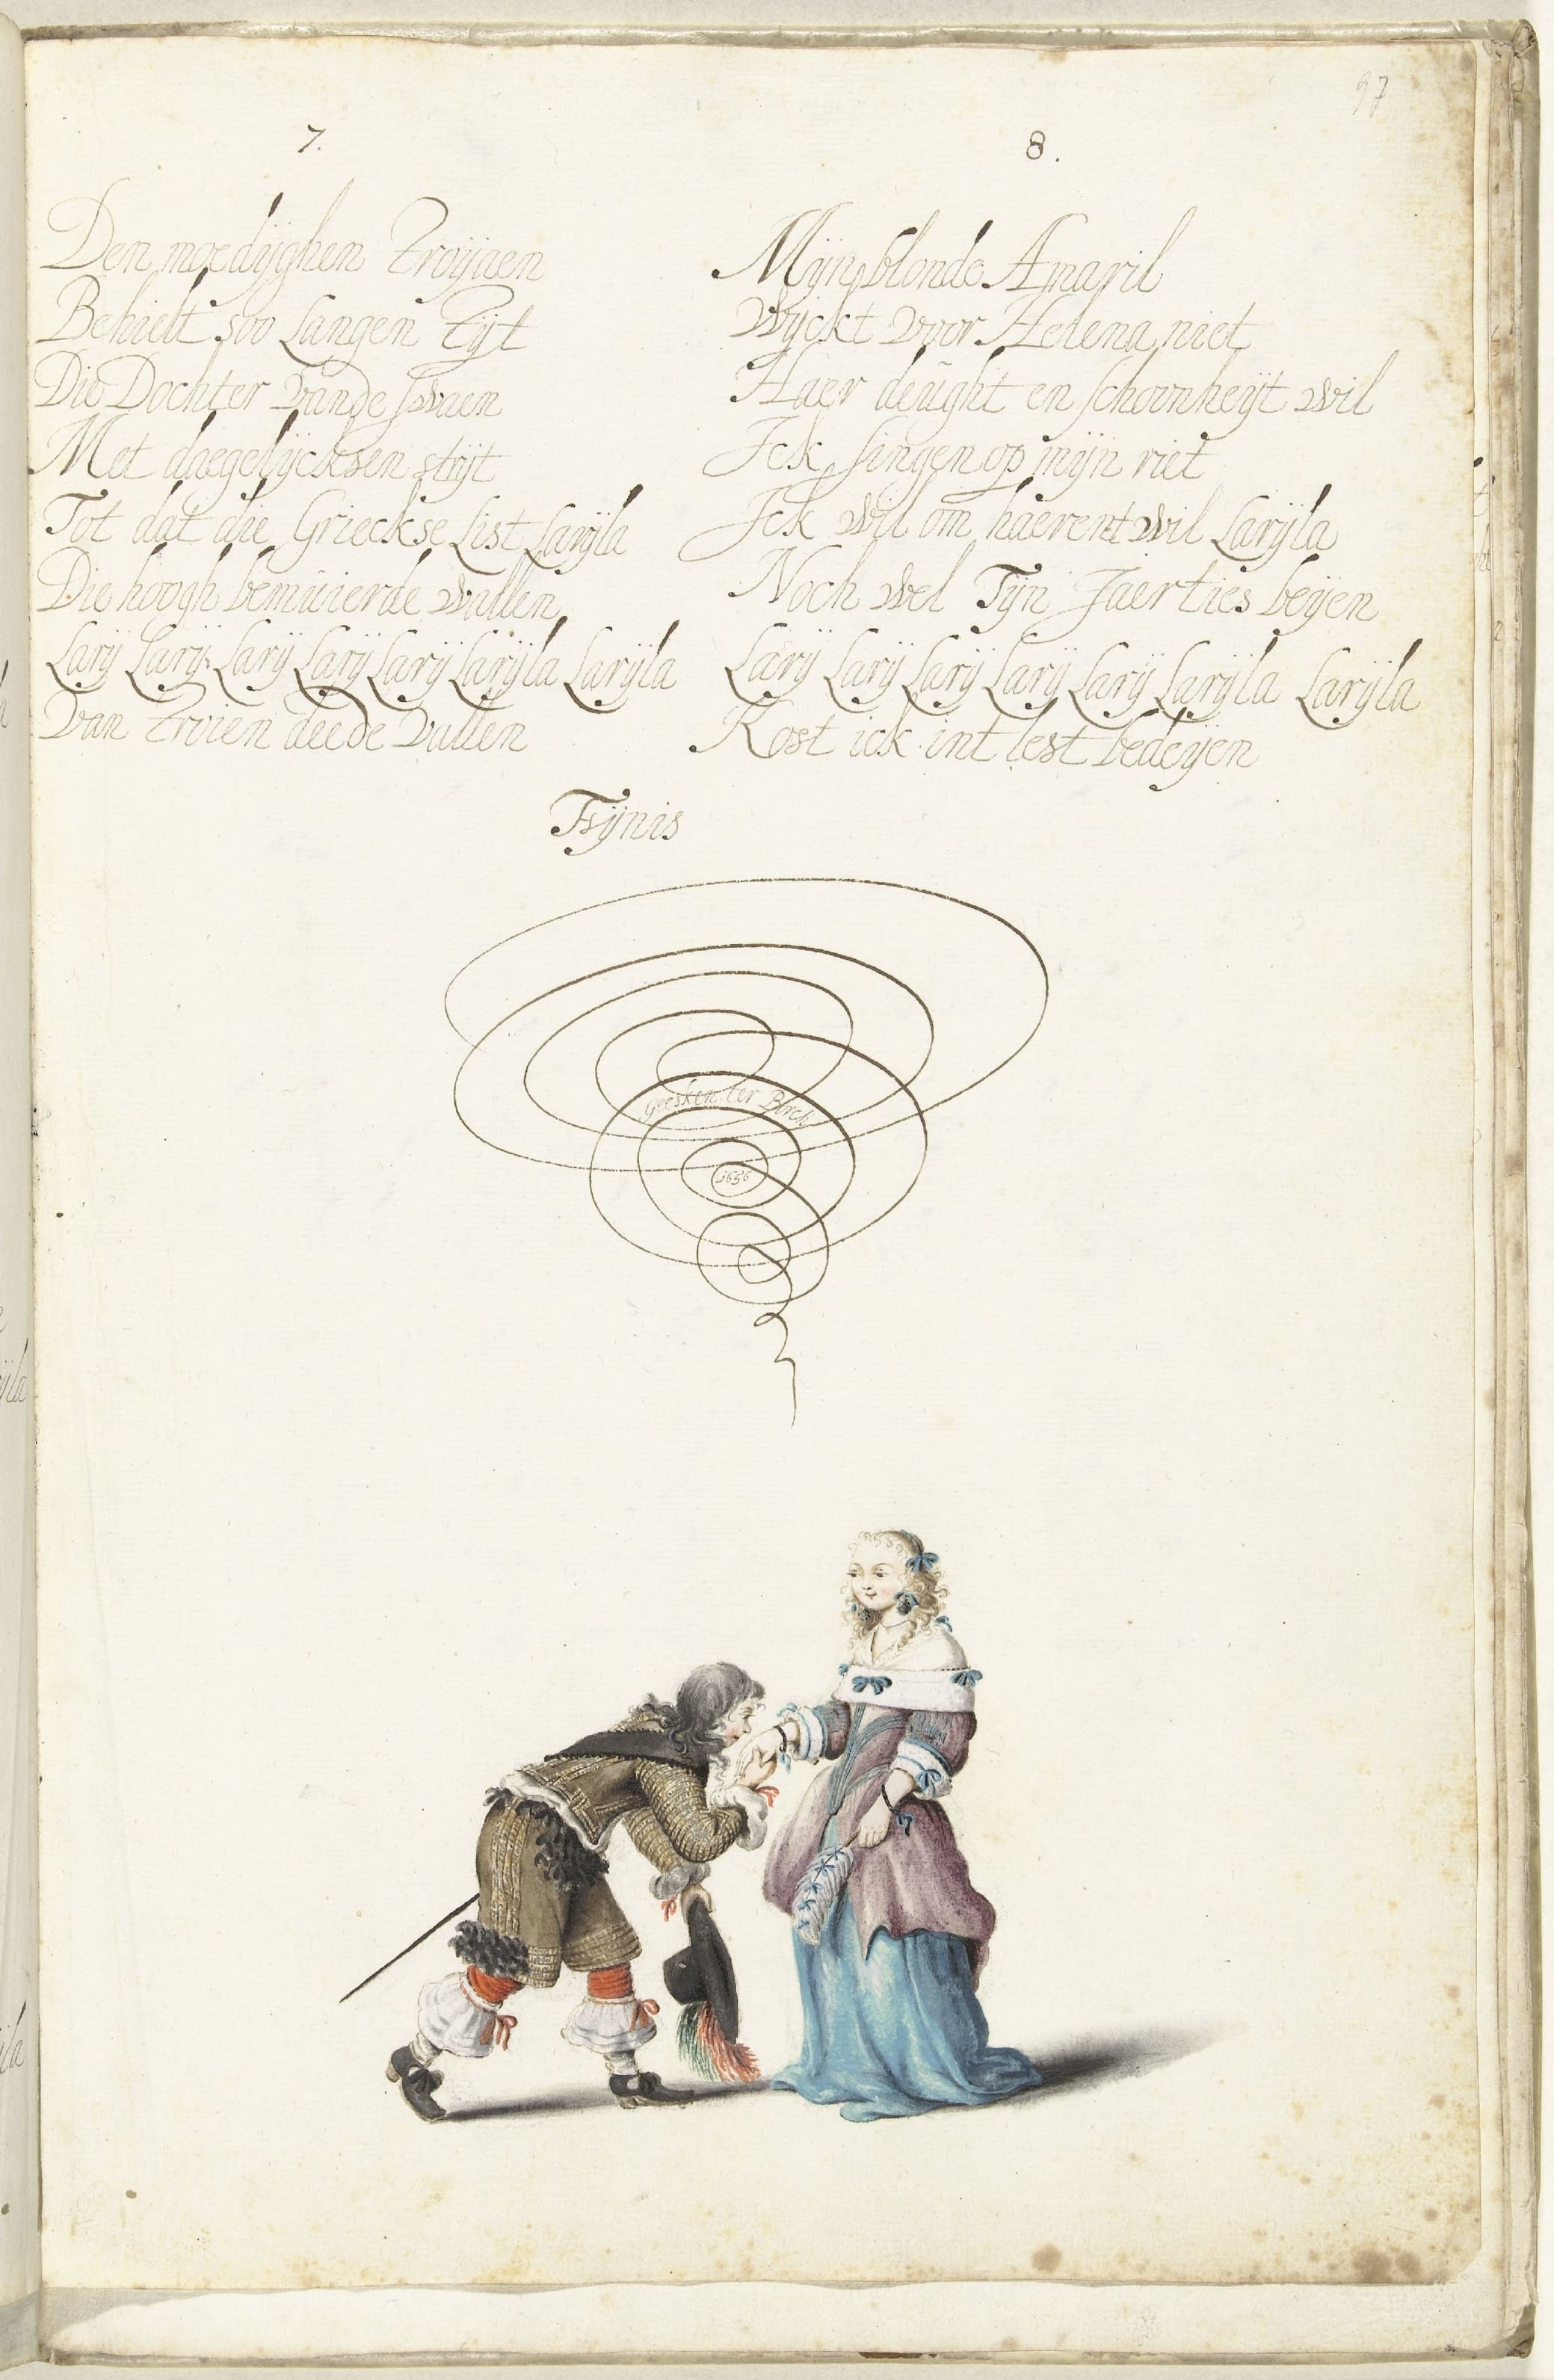 97
7.
Den moedijghen Troijaen
Behielt soo Langen Tijt
Die Dochter vande swaen
Met daegelijcksen strijt
Tot dat die Grieckse List Larijla
Die hoogh bemüierde wallen
Larij Larij Larij Larij Larij Larijla Larijla
Van Troien deede vallen
8.
Mijn blonde Amaril
Wijckt voor Helena niet
Haer deüght en schoonheijt wil
Ick singen op mijn riet
Ick wil om haerent wil Larijla
Noch wel Tijn Jaerties beijen
Larij Larij Larij Larij Larij Larijla Larijla
Kost ick int lest bedeijen
Fijnis
Geesken ter Borch
1656